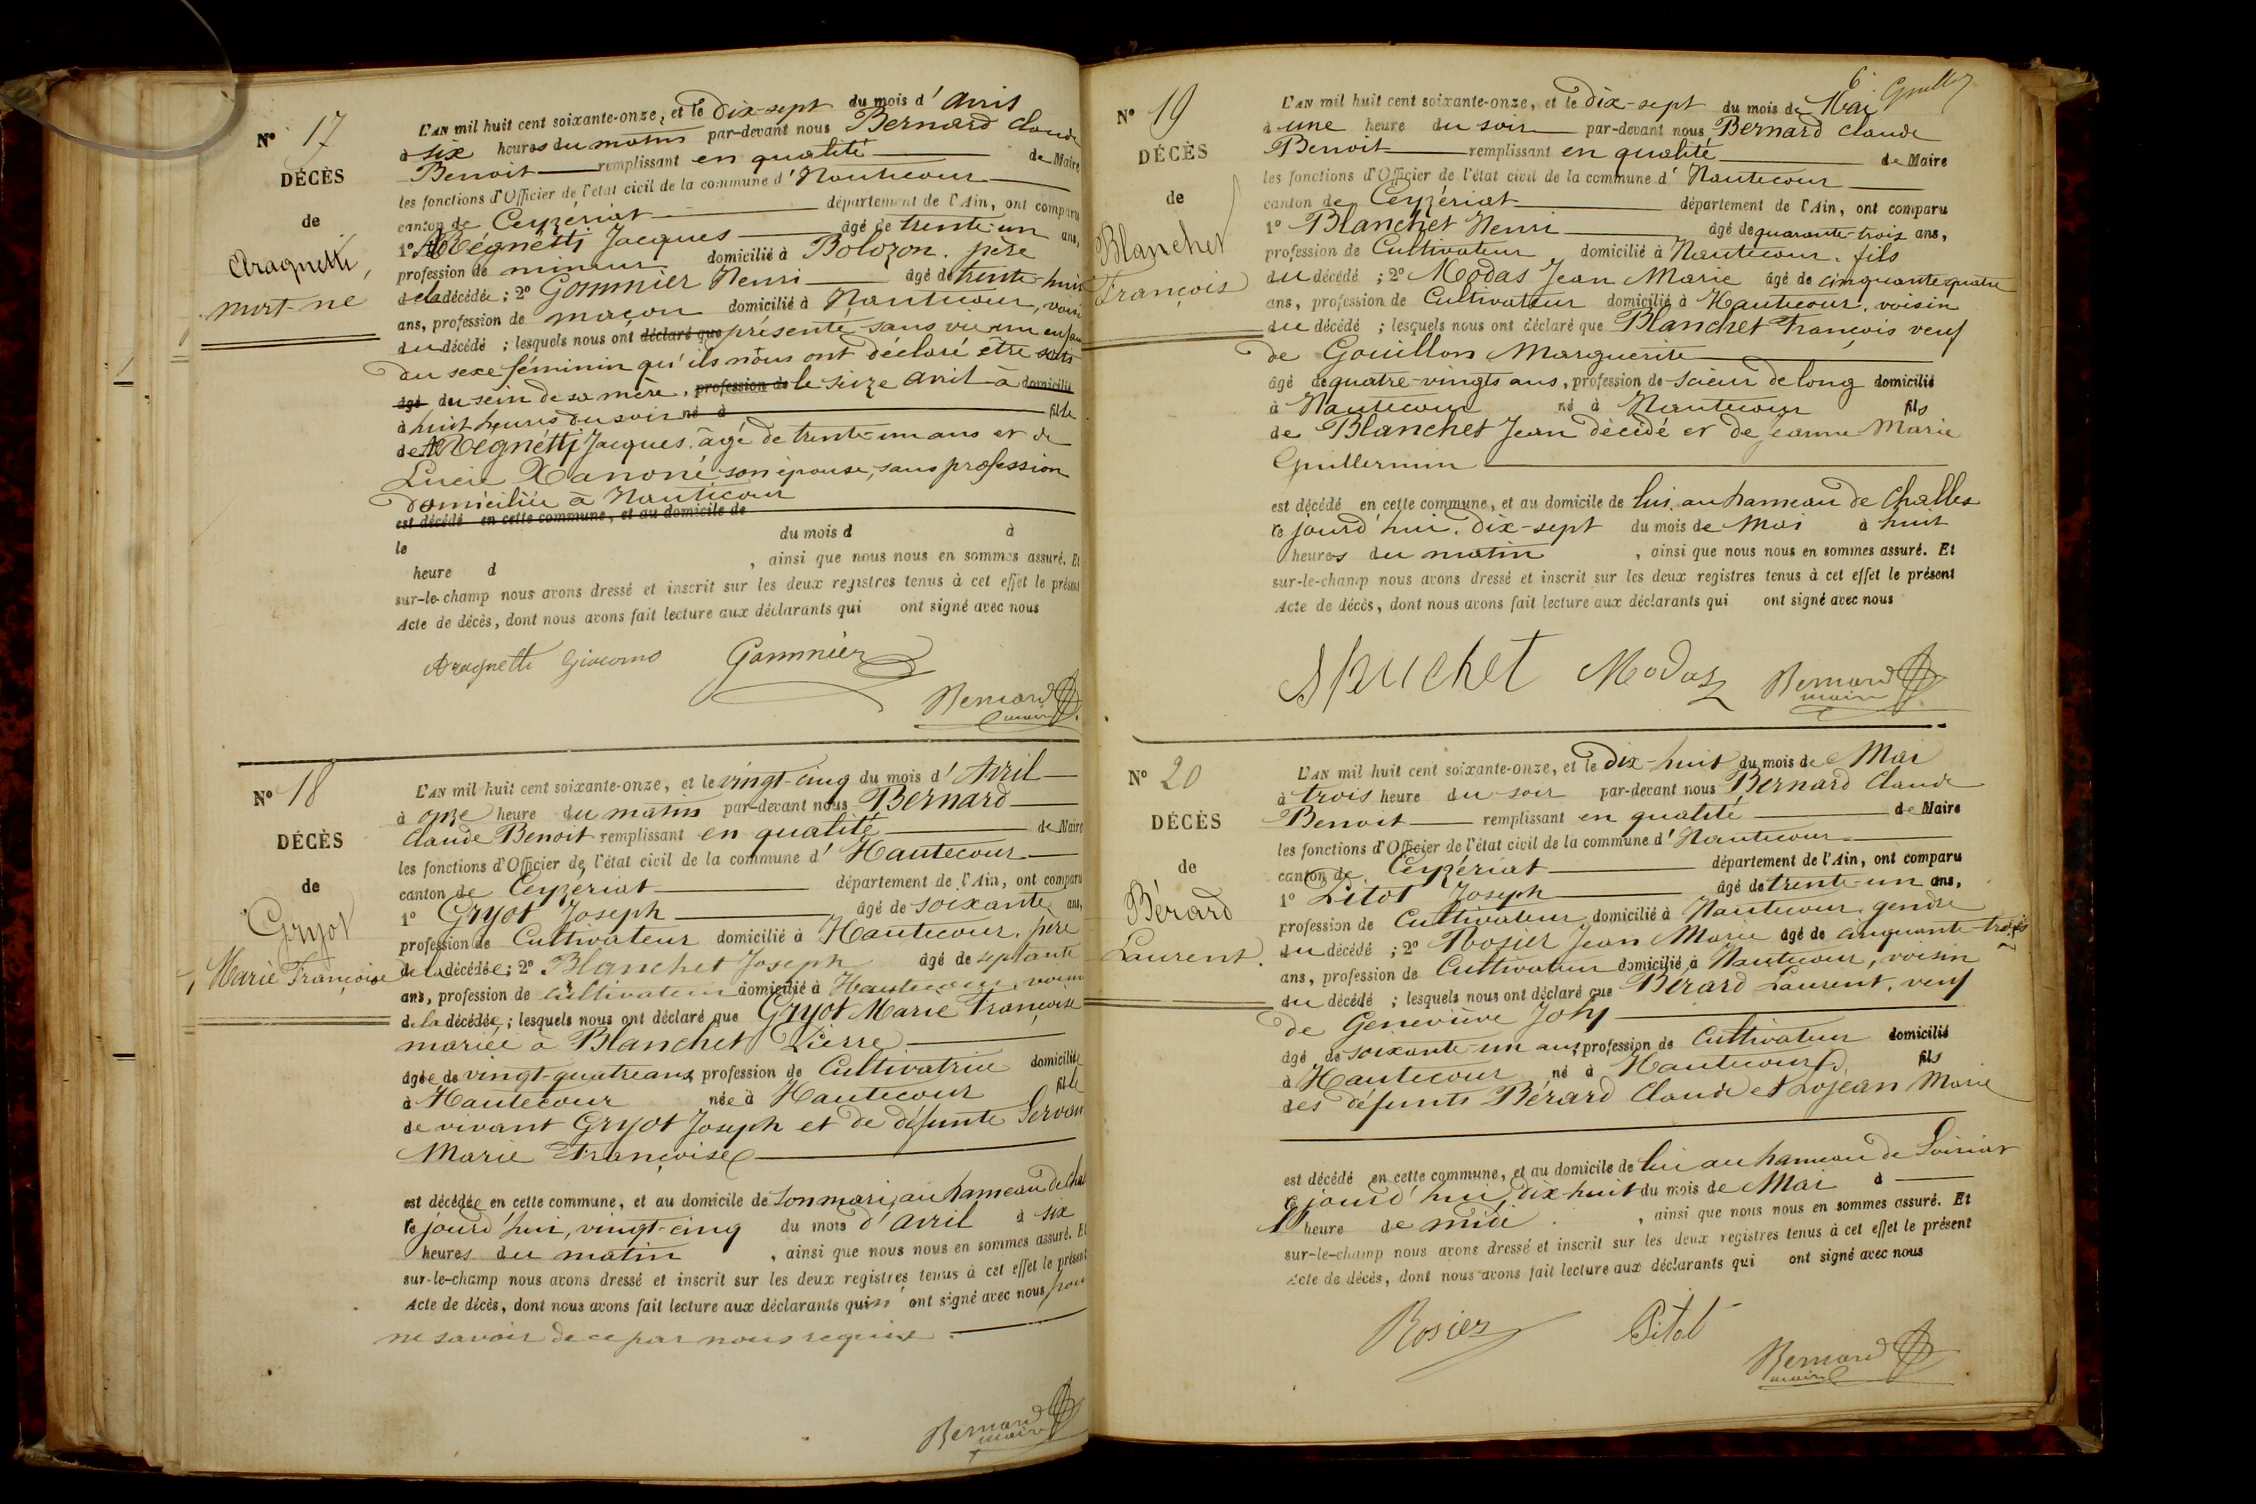 N° 17
DÉCÈS
de
Aragnetti,
mort-né
L'AN mil huit cent soixante-onze, et le Dix-sept du mois d'Avril
à six heures du matin par-devant nous Bernard Claude
Benoit remplissant en qualité de Maire
les fonctions d'Officier de l'état civil de la commune d'Hautecour
canton de Ceyzériat département de l'Ain, ont comparu
1° Régnétti Jacques âgé de trente-un ans,
profession de mineur domicilié à Bolozon, père
de la décédée ; 2° Gommier Henri âgé de trente-huit
ans, profession de maçon domicilié à Hautecour, voisin
du décédé ; lesquels nous ont déclaré que présenté sans vie un enfant
du sexe féminin qu'ils nous ont déclaré être sorti
âgé du sein de sa mère, profession de le seize avril à domicilié
à huit heures du soir né à fille
de Régnétti Jacques, âgé de trente-un ans et de
Lucie Xanoné son épouse, sans profession
domiciliée à Hautecour
est décédé en cette commune, et au domicile de
le du mois d à
heure d , ainsi que nous nous en sommes assuré. Et
sur-le-champ nous avons dressé et inscrit sur les deux registres tenus à cet effet le présent
Acte de décès, dont nous avons fait lecture aux déclarants qui ont signé avec nous
Aragnetti Giacomo Gommier
Bernard
maire
N° 18
DÉCÈS
de
Gryot
Marie Françoise
L'AN mil huit cent soixante-onze, et le vingt-cinq du mois d'Avril
à onze heure du matin par-devant nous Bernard
Claude Benoit remplissant en qualité de Maire
les fonctions d'Officier de l'état civil de la commune d'Hautecour
canton de Ceyzériat département de l'Ain, ont comparu
1° Gryot Joseph âgé de soixante ans,
profession de Cultivateur domicilié à Hautecour, père
de la décédée ; 2° Blanchet Joseph âgé de septante
ans, profession de cultivateur domicilié à Hautecour, voisin
de la décédée ; lesquels nous ont déclaré que Gryot Marie Françoise
mariée à Blanchet Pierre
âgée de vingt-quatre ans, profession de Cultivatrice domiciliée
à Hautecour née à Hautecour fille
de vivant Gryot Joseph et de défunte Servan
Marie Françoise
est décédée en cette commune, et au domicile de son mari, au hameau de Chal
ce jourd'hui, vingt-cinq du mois d'avril à six
heures du matin , ainsi que nous nous en sommes assuré. Et
sur-le-champ nous avons dressé et inscrit sur les deux registres tenus à cet effet le présent
Acte de décès, dont nous avons fait lecture aux déclarants qui n'ont signé avec nous pour
ne savoir de ce par nous requis.
Bernard
maire
6
N° 19
DÉCÈS
de
Blanchet
François
L'AN mil huit cent soixante-onze, et le dix-sept du mois de Mai
à une heure du soir par-devant nous Bernard Claude
Benoit remplissant en qualité de Maire
les fonctions d'Officier de l'état civil de la commune d'Hautecour
canton de Ceyzériat département de l'Ain, ont comparu
1° Blanchet Henri âgé de quarante-trois ans,
profession de Cultivateur domicilié à Hautecour, fils
du décédé ; 2° Modas Jean Marie âgé de cinquante quatre
ans, profession de Cultivateur domicilié à Hautecour, voisin
du décédé ; lesquels nous ont déclaré que Blanchet François veuf
de Gouillon Marguerite
âgé de quatre-vingts ans, profession de scieur de long domicilié
à Hautecour né à Hautecour fils
de Blanchet Jean décédé et de Jeanne Marie
Guillermin
est décédé en cette commune, et au domicile de lui, au hameau de Challes
ce jourd'hui, dix-sept du mois de Mai à huit
heures du matin , ainsi que nous nous en sommes assuré. Et
sur-le-champ nous avons dressé et inscrit sur les deux registres tenus à cet effet le présent
Acte de décès, dont nous avons fait lecture aux déclarants qui ont signé avec nous
Blanchet Modas Bernard
maire
N° 20
DÉCÈS
de
Bérard
Laurent.
L'AN mil huit cent soixante-onze, et le Dix-huit du mois de Mai
à trois heure du soir par-devant nous Bernard Claude
Benoit remplissant en qualité de Maire
les fonctions d'Officier de l'état civil de la commune d'Hautecour
canton de Ceyzériat département de l'Ain, ont comparu
1° Pitot Joseph âgé de trente-un ans,
profession de Cultivateur domicilié à Hautecour, gendre
du décédé ; 2° Rosier Jean Marie âgé de cinquante-trois
ans, profession de Cultivateur domicilié à Hautecour, voisin
du décédé ; lesquels nous ont déclaré que Bérard Laurent, veuf
de Geneviève Joly
âgé de soixante-un ans, profession de Cultivateur domicilié
à Hautecour né à Hautecour fils
des défunts Bérard Claude et Lojean Marie
est décédé en cette commune, et au domicile de lui au hameau de Soiriat
ce jourd'hui, dix-huit du mois de Mai à
heure de midi , ainsi que nous nous en sommes assuré. Et
sur-le-champ nous avons dressé et inscrit sur les deux registres tenus à cet effet le présent
Acte de décès, dont nous avons fait lecture aux déclarants qui ont signé avec nous
Rosier Pitot
Bernard
maire